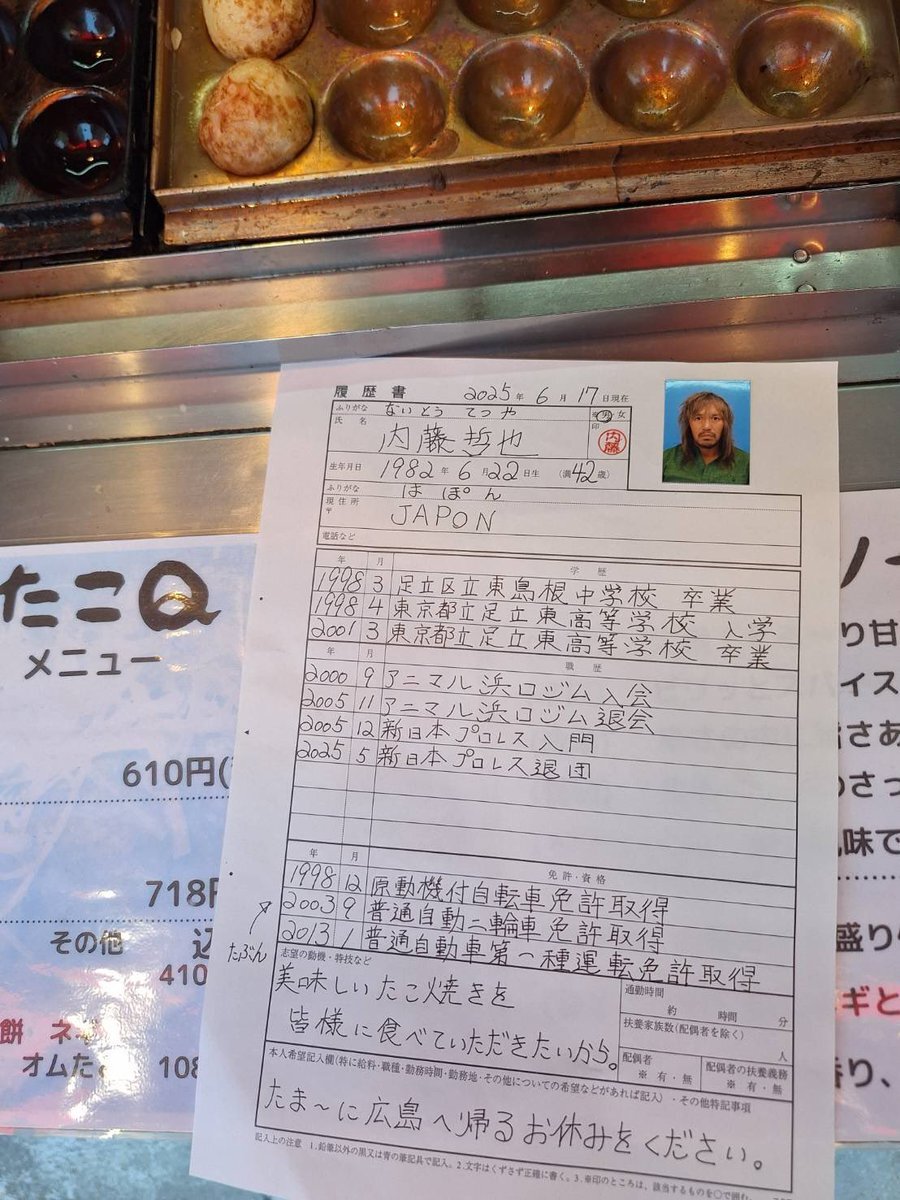 履歴書 2025年 6月 17日現在
ふりがな ないとう てつや
男 女
氏名 内藤哲也
印 内藤
生年月日 1982年 6月 22日生 (満 42歳)
ふりがな はぽん
現住所
〒 JAPON
電話など
年 月 学歴
1998 3 足立区立東島根中学校 卒業
1998 4 東京都立足立東高等学校 入学
2001 3 東京都立足立東高等学校 卒業
年 月 職歴
2000 9 アニマル浜口ジム入会
2005 11 アニマル浜口ジム退会
2005 12 新日本プロレス入門
2025 5 新日本プロレス退団
年 月 免許・資格
1998 12 原動機付自転車免許取得
2003 9 普通自動二輪車免許取得
2013 1 普通自動車第一種運転免許取得
たぶん
志望の動機・特技など
美味しいたこ焼きを
皆様に食べていただきたいから。
通勤時間
約 時間 分
扶養家族数(配偶者を除く)
人
配偶者
※ 有・無
配偶者の扶養義務
※ 有・無
本人希望記入欄(特に給料・職種・勤務時間・勤務地・その他についての希望などがあれば記入)・その他特記事項
たま〜に広島へ帰るお休みをください。
記入上の注意 1.鉛筆以外の黒又は青の筆記具で記入。2.文字はくずさず正確に書く。3.※印のところは、該当するものを○で囲む。
たこQ
メニュー
610円(
718円
その他 込
410
餅 ネギ
オムたこ 108
り甘
イス
さあ
のさっ
風味で
盛り
ギと
り、